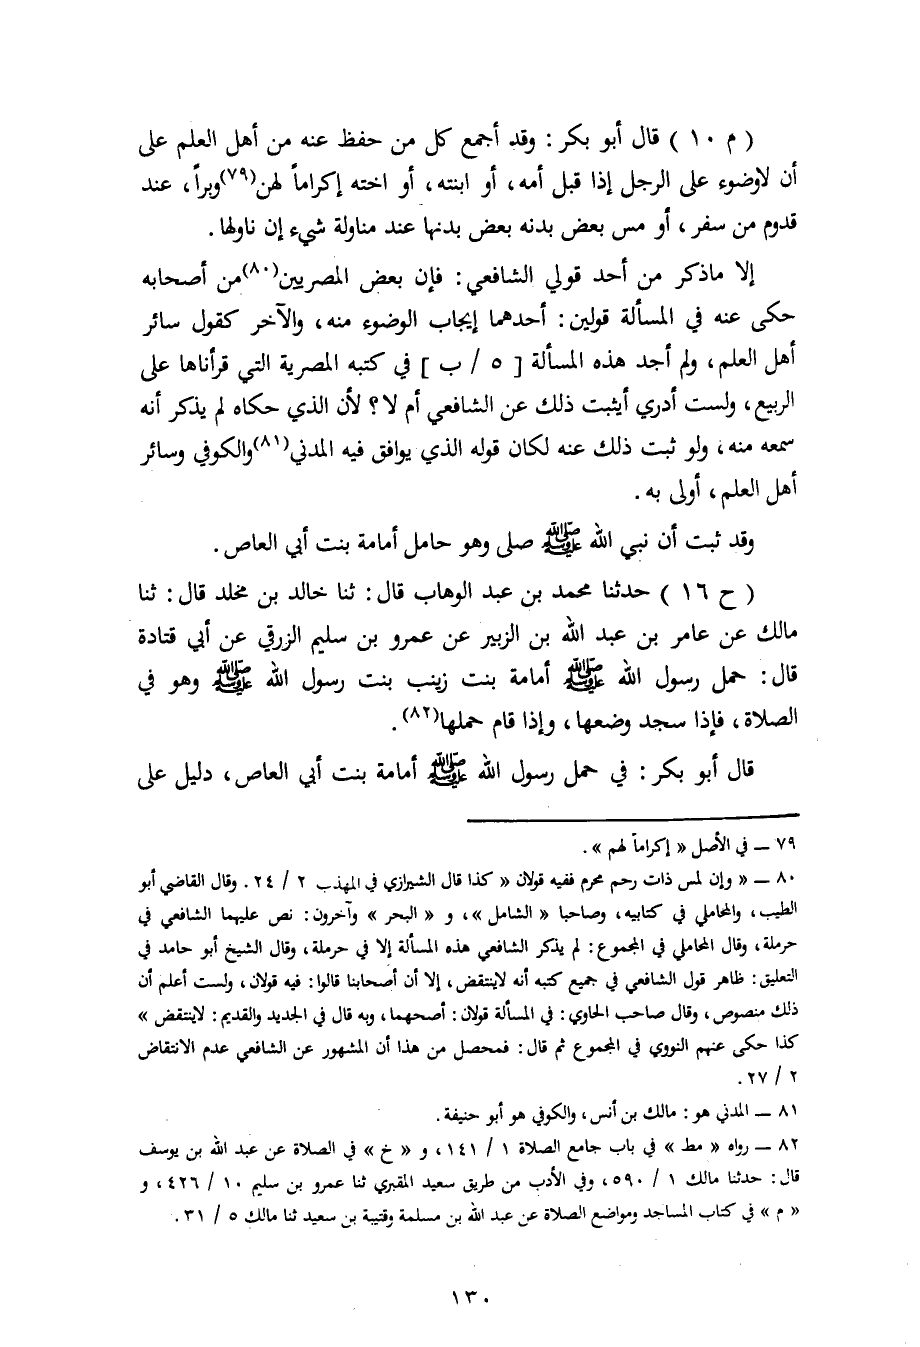 ( م ١٠ ) قال أبو بكر : وقد أجمع كل من حفظ عنه من أهل العلم على
أن لاوضوء على الرجل إذا قبل أمه، أو ابنته، أو اخته إكراماً لهن(٧٩)وبراً، عند
قدوم من سفر، أو مس بعض بدنه بعض بدنها عند مناولة شيء إن ناولها .
إلا ماذكر من أحد قولي الشافعي : فإن بعض المصريين(٨٠)من أصحابه
حكى عنه في المسألة قولين : أحدهما إيجاب الوضوء منه، والآخر كقول سائر
أهل العلم، ولم أجد هذه المسألة [ ٥ / ب ] في كتبه المصرية التي قرأناها على
الربيع، ولست أدري أيثبت ذلك عن الشافعي أم لا؟ لأن الذي حكاه لم يذكر أنه
سمعه منه، ولو ثبت ذلك عنه لكان قوله الذي يوافق فيه المدني(٨١)والكوفي وسائر
أهل العلم، أولى به .
وقد ثبت أن نبي الله ﷺ صلى وهو حامل أمامة بنت أبي العاص .
( ح ١٦ ) حدثنا محمد بن عبد الوهاب قال : ثنا خالد بن مخلد قال : ثنا
مالك عن عامر بن عبد الله بن الزبير عن عمرو بن سليم الزرقي عن أبي قتادة
قال : حمل رسول الله ﷺ أمامة بنت زينب بنت رسول الله ﷺ وهو في
الصلاة، فإذا سجد وضعها، وإذا قام حملها(٨٢).
قال أبو بكر : في حمل رسول الله ﷺ أمامة بنت أبي العاص، دليل على
٧٩ – في الأصل « إكراماً لهم ».
٨٠ – « وإن لمس ذات رحم محرم ففيه قولان « كذا قال الشيرازي في المهذب ٢ / ٢٤ . وقال القاضي أبو
الطيب، والمحاملي في كتابيه، وصاحبا « الشامل »، و « البحر » وآخرون : نص عليهما الشافعي في
حرملة، وقال المحاملي في المجموع : لم يذكر الشافعي هذه المسألة إلا في حرملة، وقال الشيخ أبو حامد في
التعليق : ظاهر قول الشافعي في جميع كتبه أنه لاينتقض، إلا أن أصحابنا قالوا : فيه قولان، ولست أعلم أن
ذلك منصوص، وقال صاحب الحاوي : في المسألة قولان : أصحهما، وبه قال في الجديد والقديم : لاينتقض »
كذا حكى عنهم النووي في المجموع ثم قال : فمحصل من هذا أن المشهور عن الشافعي عدم الانتقاض
٢ / ٢٧ .
٨١ – المدني هو : مالك بن أنس، والكوفي هو أبو حنيفة .
٨٢ – رواه « مط » في باب جامع الصلاة ١ / ١٤١، و « خ » في الصلاة عن عبد الله بن يوسف
قال : حدثنا مالك ١ / ٥٩٠، وفي الأدب من طريق سعيد المقبري ثنا عمرو بن سليم ١٠ / ٤٢٦، و
« م » في كتاب المساجد ومواضع الصلاة عن عبد الله بن مسلمة وقتيبة بن سعيد ثنا مالك ٥ / ٣١ .
١٣٠